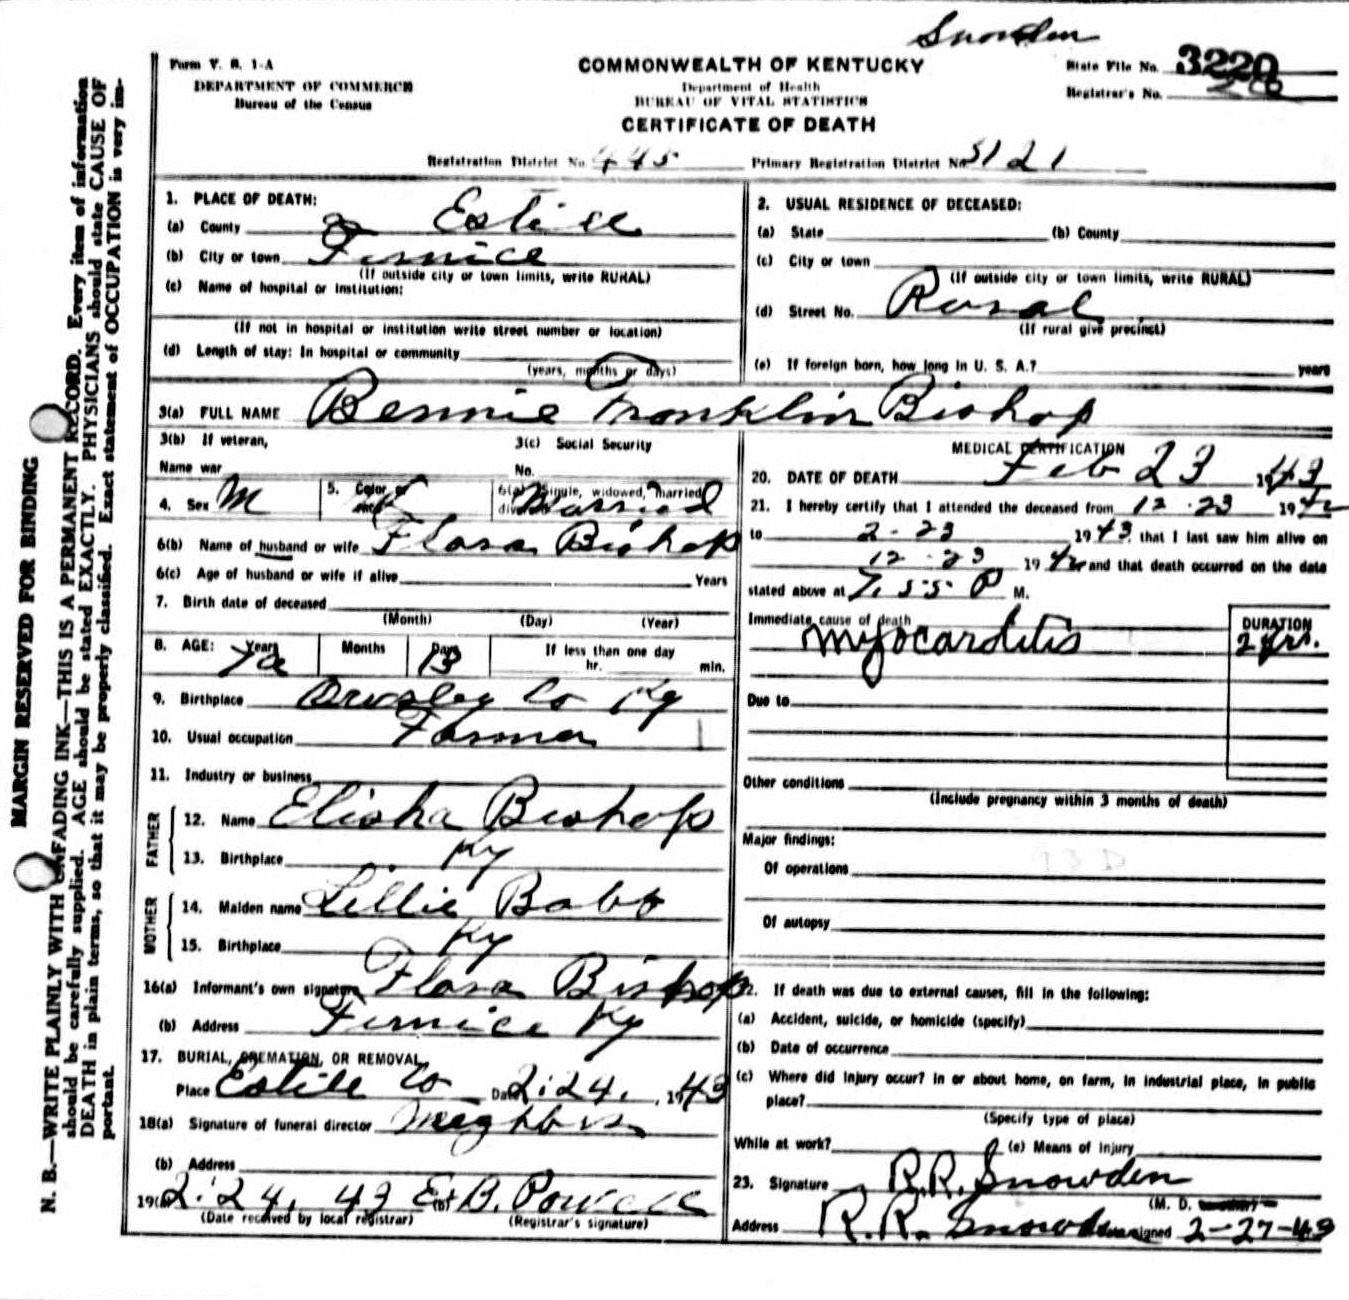 Snowden
Form V. S. 1-A
DEPARTMENT OF COMMERCE
Bureau of the Census
COMMONWEALTH OF KENTUCKY
Department of Health
BUREAU OF VITAL STATISTICS
CERTIFICATE OF DEATH
State File No. 3220
Registrar's No. 28
Registration District No. 445 Primary Registration District No. 3121
1. PLACE OF DEATH:
(a) County Estill
(b) City or town Furnice
(If outside city or town limits, write RURAL)
(c) Name of hospital or institution:
(If not in hospital or institution write street number or location)
(d) Length of stay: In hospital or community
(years, months or days)
2. USUAL RESIDENCE OF DECEASED:
(a) State (b) County
(c) City or town
(If outside city or town limits, write RURAL)
(d) Street No. Rural
(If rural give precinct)
(e) If foreign born, how long in U. S. A.? years
3(a) FULL NAME Bennie Franklin Bishop
3(b) If veteran,
Name war
3(c) Social Security
No.
4. Sex M 5. Color or 6(a) Single, widowed, married Married
6(b) Name of husband or wife Flora Bishop
6(c) Age of husband or wife if alive Years
7. Birth date of deceased
(Month) (Day) (Year)
8. AGE: Years Months Days 13 If less than one day
hr. min.
9. Birthplace Owsley Co Ky
10. Usual occupation Farmer
11. Industry or business
FATHER
12. Name Elisha Bishop
13. Birthplace Ky
MOTHER
14. Maiden name Lillie Babb
15. Birthplace Ky
16(a) Informant's own signature Flora Bishop
(b) Address Furnice Ky
17. BURIAL, CREMATION, OR REMOVAL,
Place Estill Co Date 2-24, 1943
18(a) Signature of funeral director Neighbors
(b) Address
19(a) 2-24, 43 (b) E. B. Powell
(Date received by local registrar) (Registrar's signature)
MEDICAL CERTIFICATION
20. DATE OF DEATH Feb 23 1943
21. I hereby certify that I attended the deceased from 12-23 1942
to 2-23 1943, that I last saw him alive on
12-23 1942 and that death occurred on the date
stated above at 7.55 P M.
Immediate cause of death DURATION
myocarditis 2 yrs.
Due to
Other conditions
(Include pregnancy within 3 months of death)
Major findings:
Of operations
93 D
Of autopsy
22. If death was due to external causes, fill in the following:
(a) Accident, suicide, or homicide (specify)
(b) Date of occurrence
(c) Where did injury occur? in or about home, on farm, in industrial place, in public
place?
(Specify type of place)
While at work? (e) Means of Injury
23. Signature R.R. Snowden
(M. D.
Address R.R. Snowden signed 2-27-43
MARGIN RESERVED FOR BINDING
N. B.—WRITE PLAINLY WITH UNFADING INK—THIS IS A PERMANENT RECORD. Every item of information
should be carefully supplied. AGE should be stated EXACTLY. PHYSICIANS should state CAUSE OF
DEATH in plain terms, so that it may be properly classified. Exact statement of OCCUPATION is very im-
portant.